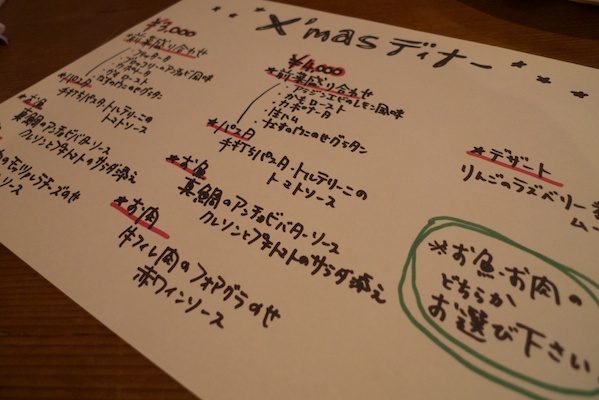 X'masディナー
¥3,000
★前菜盛り合わせ
・カポナータ
★パスタ
手打ちパスタ・トルテリーニの
トマトソース
★お魚
真鯛のアンチョビバターソース
クレソンとプチトマトのサラダ添え
ソース
¥4,000
★前菜盛り合わせ
レモン風味
・カモロースト
・カポナータ
・生ハム
★パスタ
手打ちパスタ・トルテリーニの
トマトソース
★お魚
真鯛のアンチョビバターソース
クレソンとプチトマトのサラダ添え
★お肉
牛フィレ肉のフォアグラのせ
赤ワインソース
★デザート
りんごのラズベリー
ムー
※お魚・お肉の
どちらか
お選び下さい